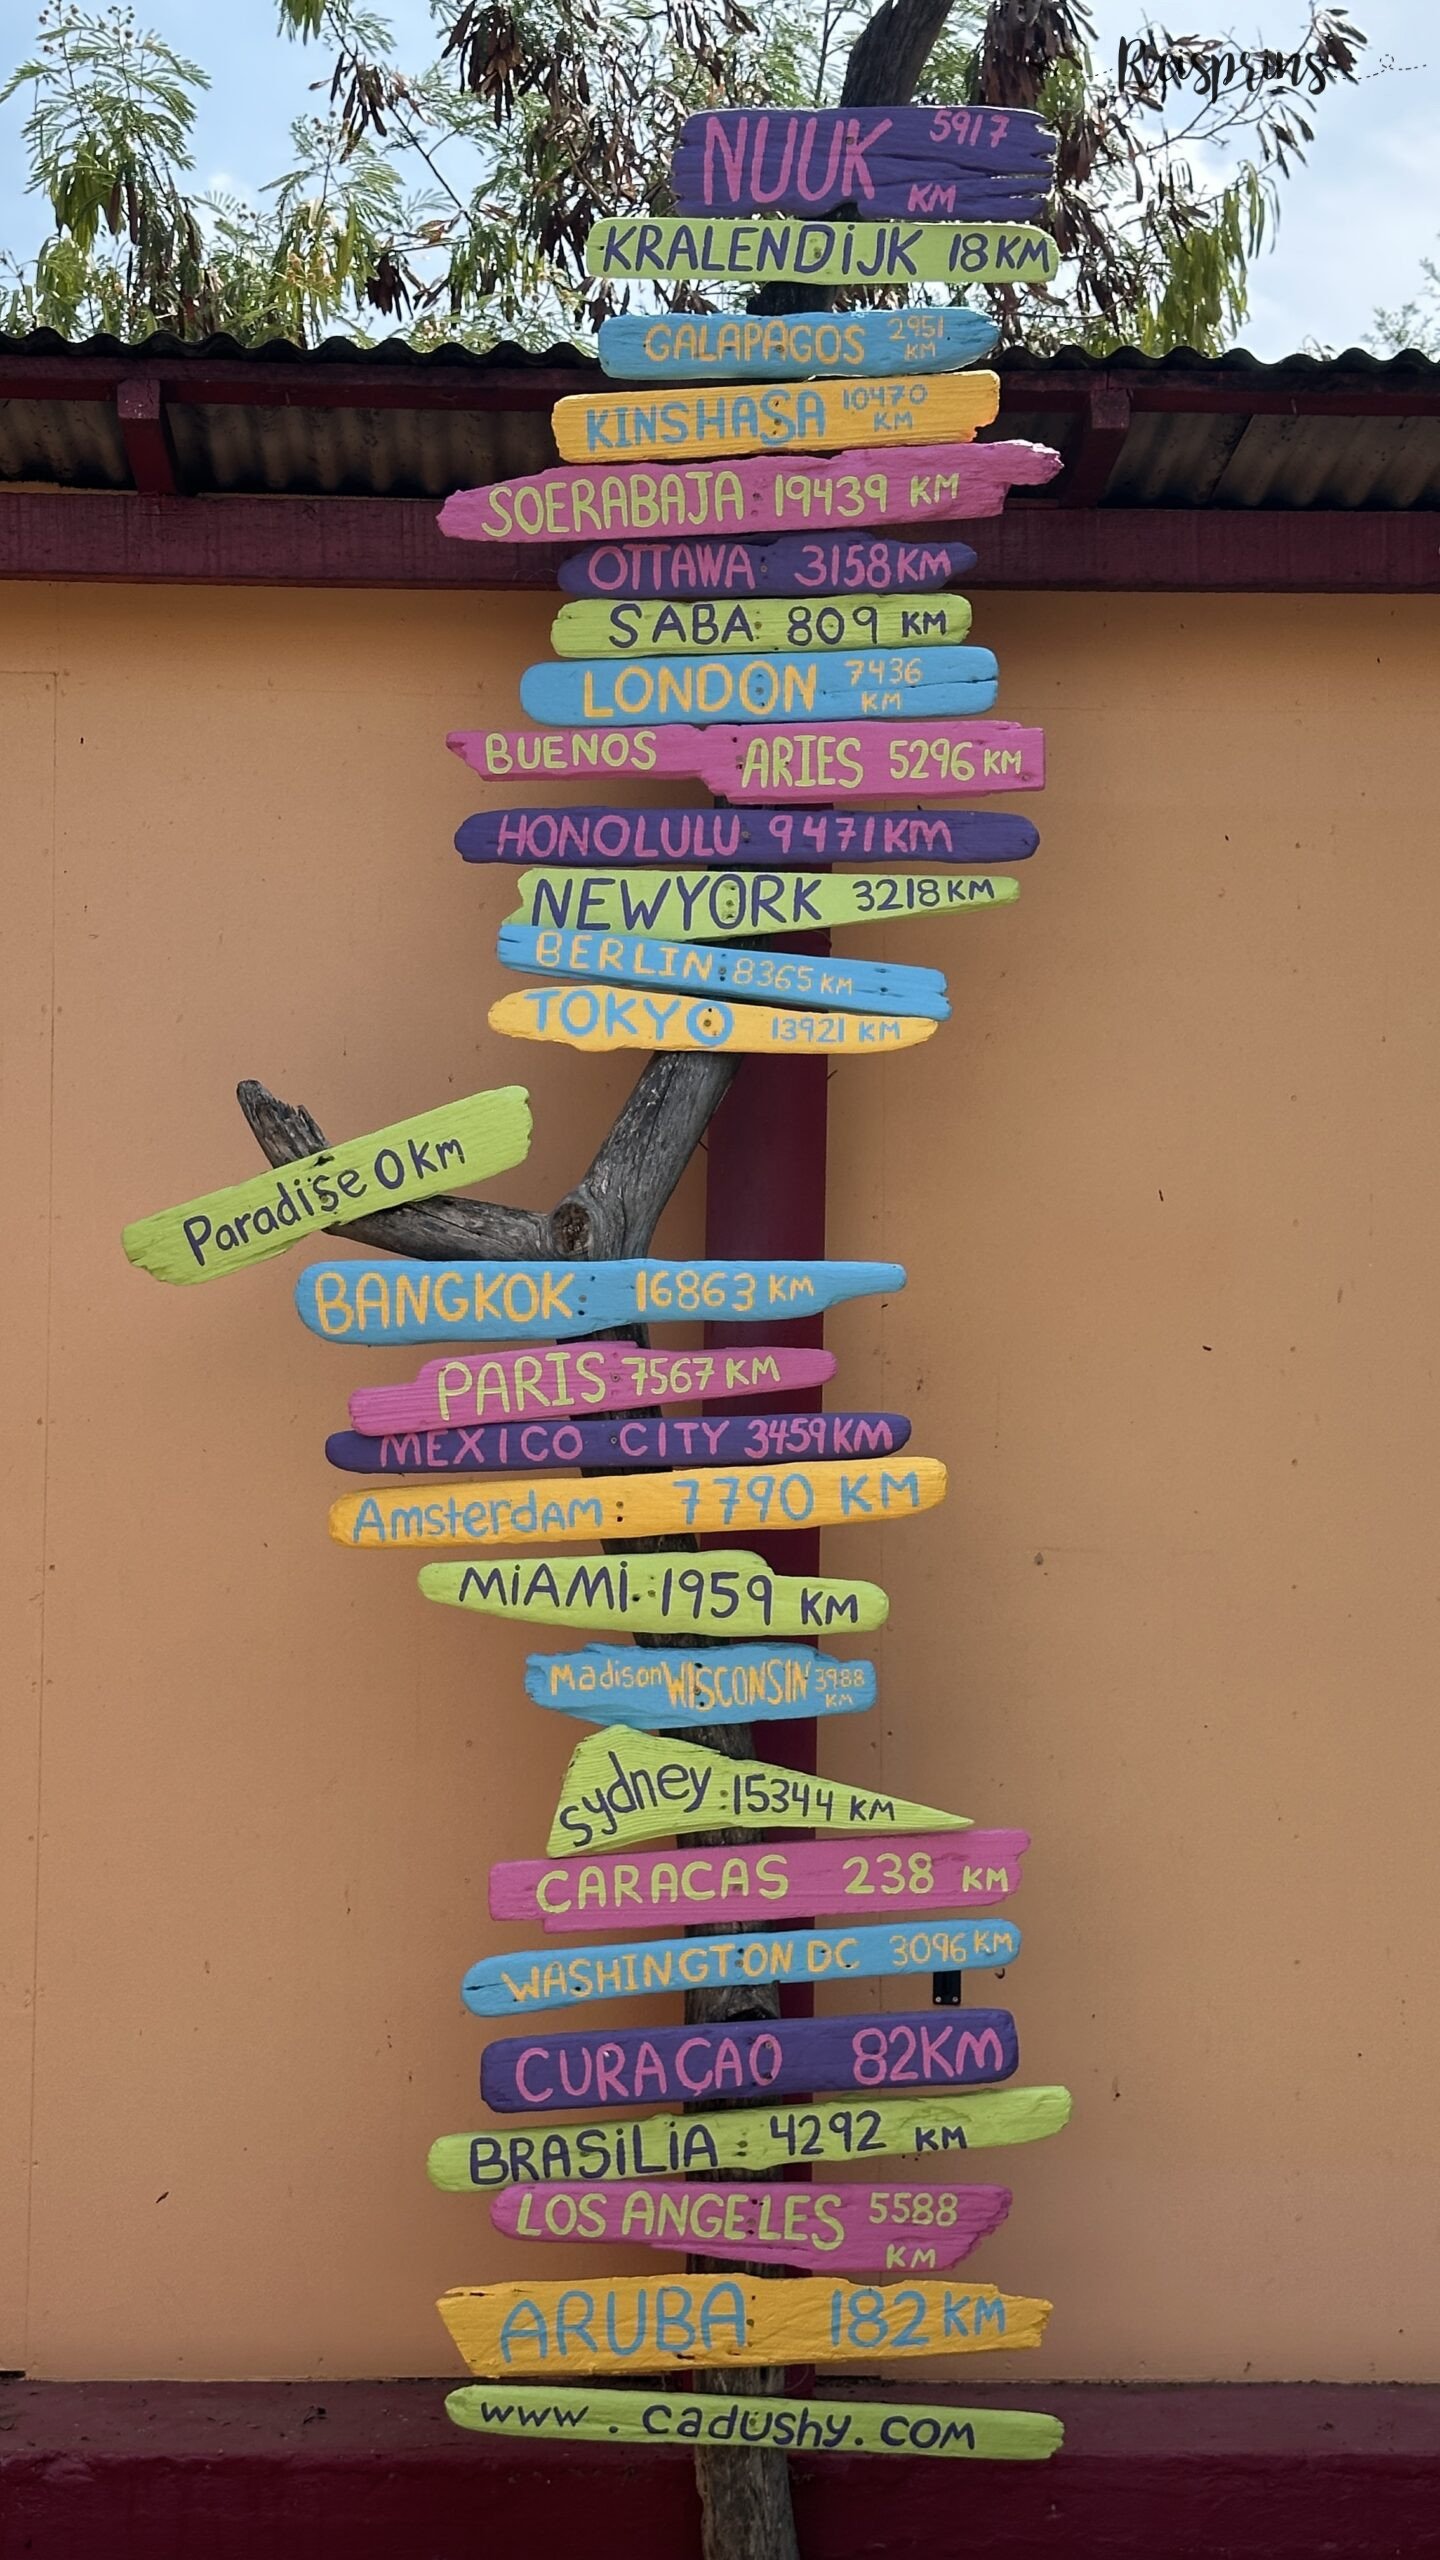 Reisprins
NUUK 5917 KM
KRALENDIJK 18 KM
GALAPAGOS 2951 KM
KINSHASA 10470 KM
SOERABAJA 19439 KM
OTTAWA: 3158KM
SABA: 809 KM
LONDON 7436 KM
BUENOS ARIES 5296 KM
HONOLULU 9471KM
NEWYORK 3218KM
BERLIN: 8365 KM
TOKYO 13921 KM
Paradise 0 Km
BANGKOK: 16863 KM
PARIS 7567 KM
MEXICO CITY 3459KM
Amsterdam: 7790 KM
MiAMi: 1959 KM
Madison WISCONSIN 3988 KM
Sydney: 15344 KM
CARACAS 238 KM
WASHINGTON DC 3096 KM
CURAÇAO 82KM
BRASiLiA: 4292 KM
LOS ANGELES 5588 KM
ARUBA 182 KM
www.cadushy.com